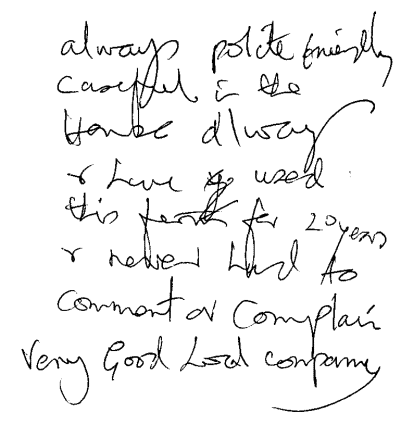 always polite friendly
careful in the
House always
& have used
this firm for 20 years
& never had to
comment or complain
Very Good Local company